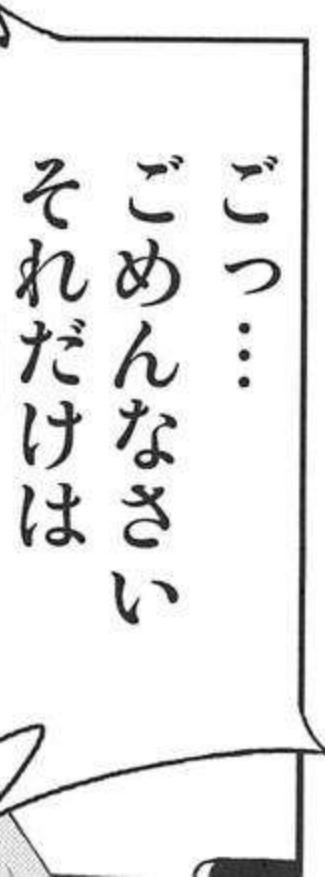 ごっ…
ごめんなさい
それだけは